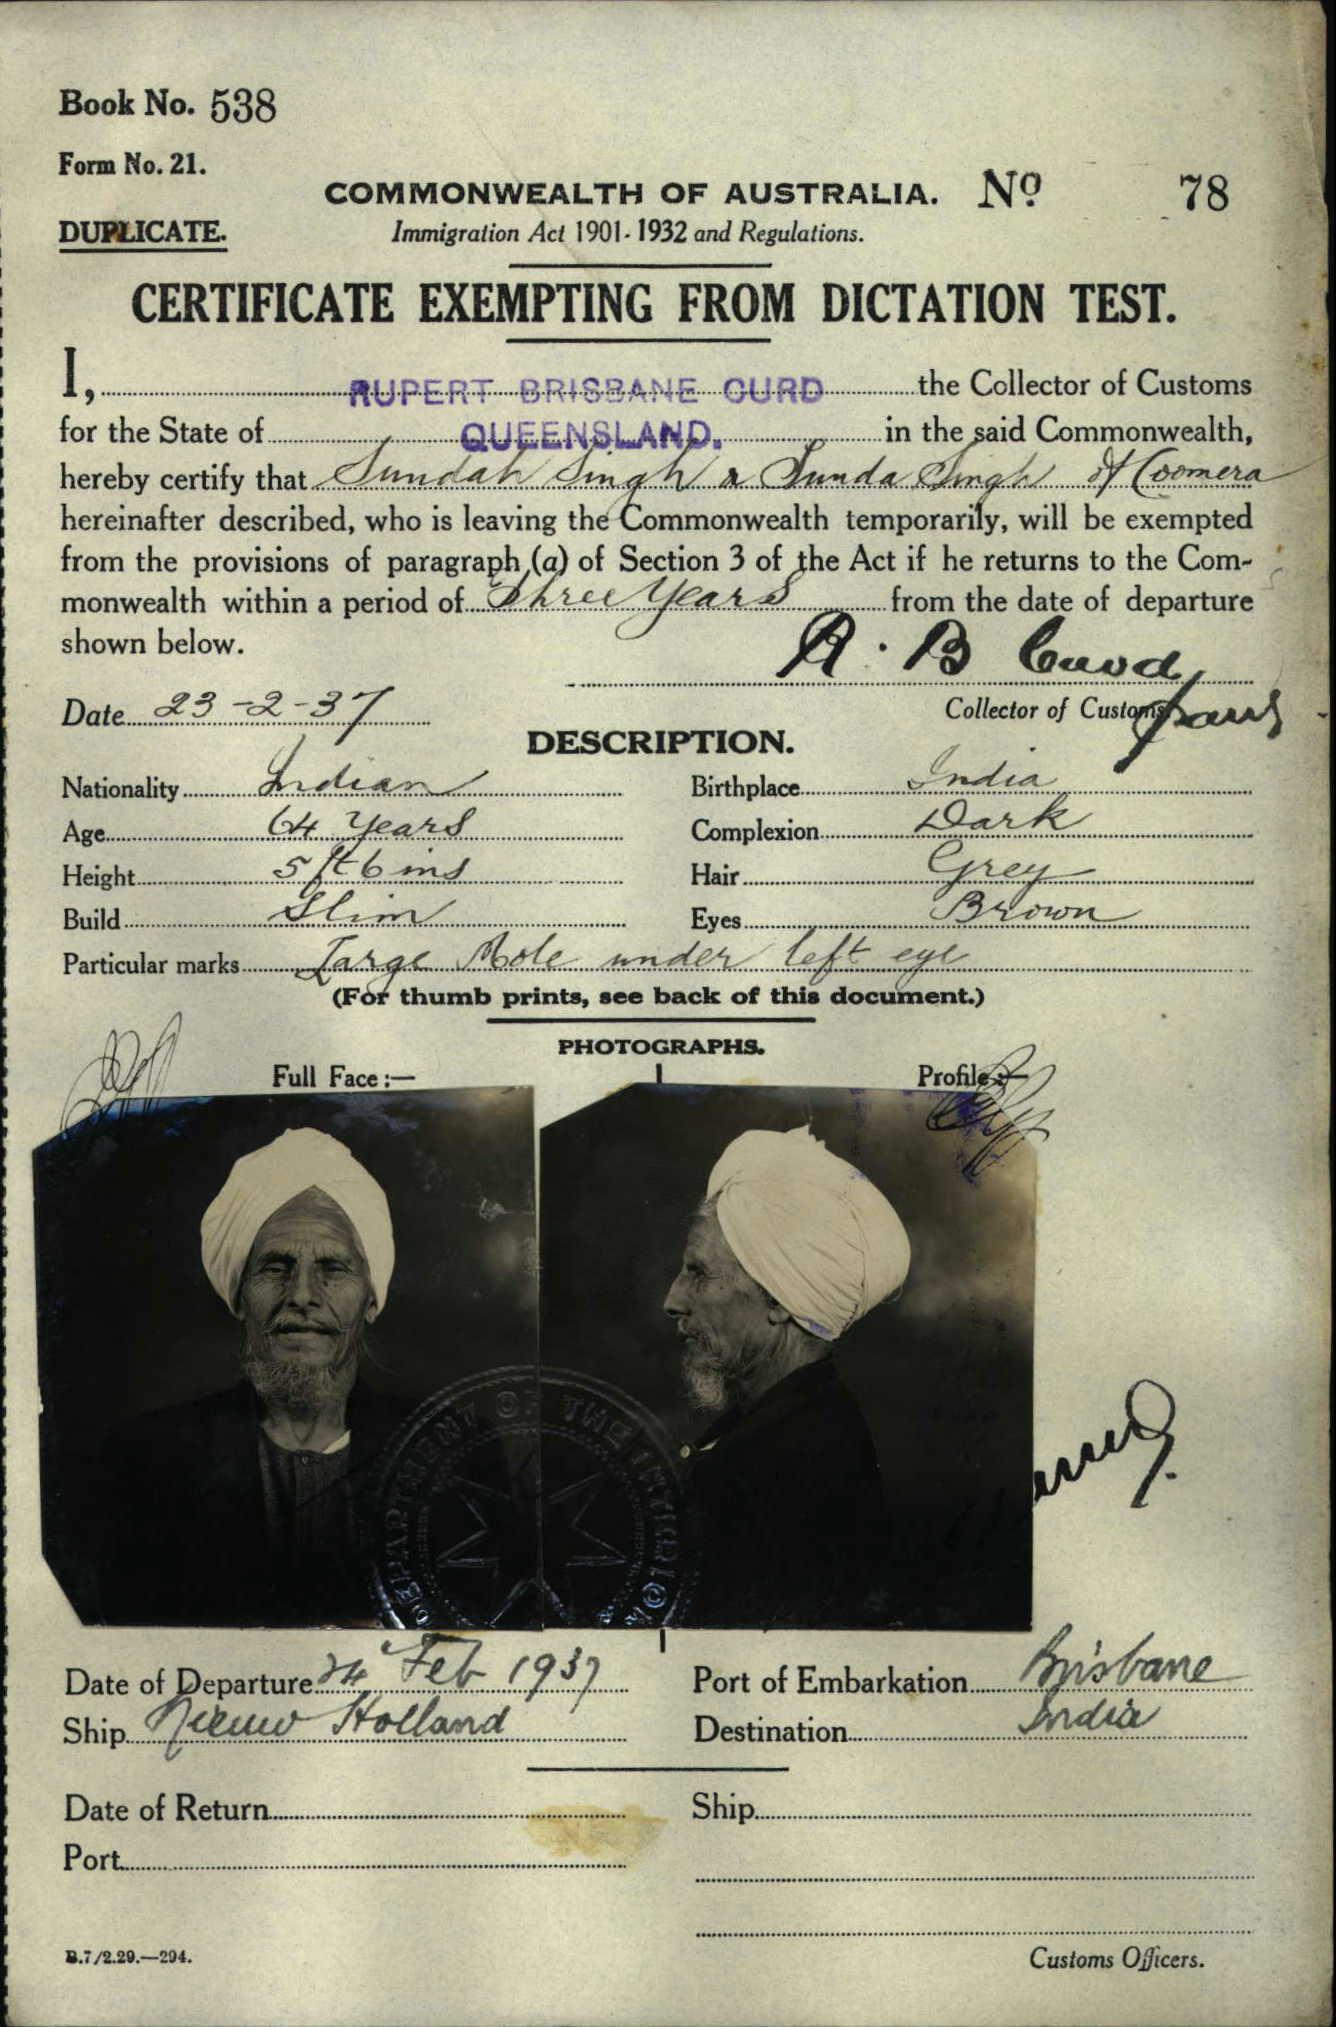 Book No. 538
Form No. 21.
COMMONWEALTH OF AUSTRALIA. No 78
DUPLICATE.
Immigration Act 1901-1932 and Regulations.
CERTIFICATE EXEMPTING FROM DICTATION TEST.
I, RUPERT BRISBANE CURD the Collector of Customs
for the State of QUEENSLAND. in the said Commonwealth,
hereby certify that Sundah Singh or Sunda Singh of Coomera
hereinafter described, who is leaving the Commonwealth temporarily, will be exempted
from the provisions of paragraph (a) of Section 3 of the Act if he returns to the Com-
monwealth within a period of Three Years from the date of departure
shown below.
R. B Curd
Date 23-2-37
Collector of Customs
DESCRIPTION.
Nationality Indian Birthplace India
Age 64 Years Complexion Dark
Height 5 ft 6 ins Hair Grey
Build Slim Eyes Brown
Particular marks Large Mole under left eye
(For thumb prints, see back of this document.)
PHOTOGRAPHS.
Full Face :— Profile :—
DEPARTMENT OF THE INTERIOR
Date of Departure 24 Feb 1937 Port of Embarkation Brisbane
Ship Nieuw Holland Destination India
Date of Return Ship
Port
B.7/2.29.—294.
Customs Officers.